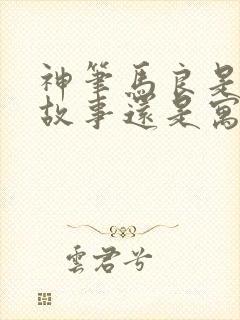 神筆馬良是
故事還是寓
雲君兮